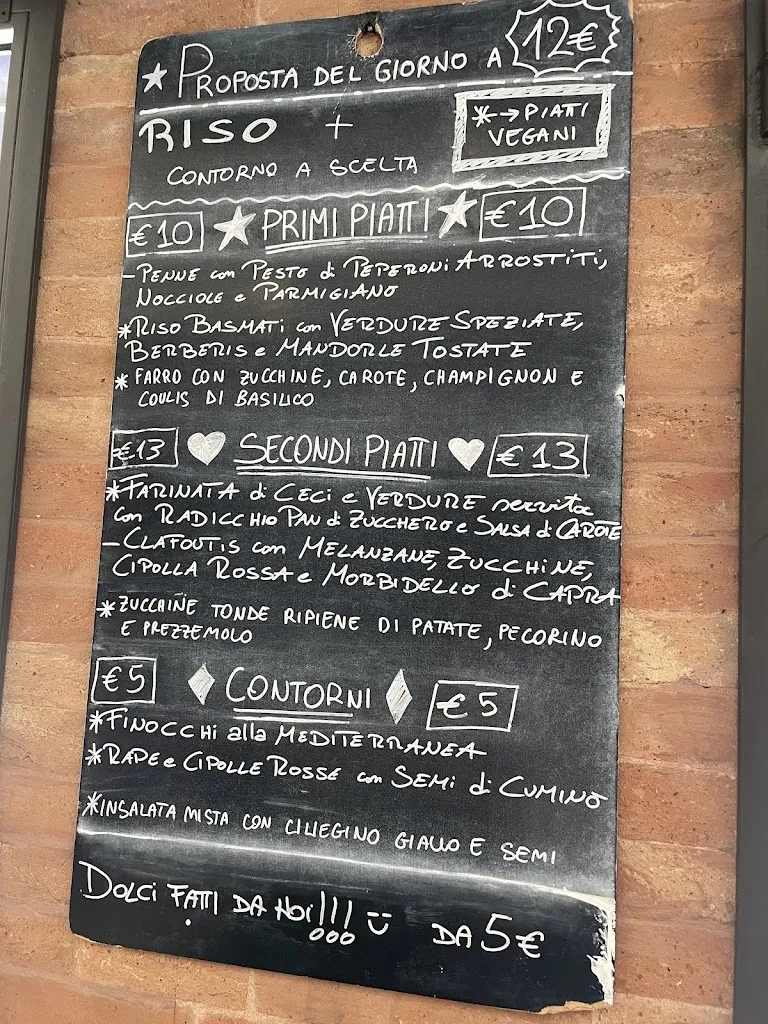 ★ PROPOSTA DEL GIORNO A 12€
RISO +
CONTORNO A SCELTA
*--→ PIATTI
VEGANI
€10 ★ PRIMI PIATTI ★ €10
- PENNE con PESTO di PEPERONI ARROSTITI,
NOCCIOLE e PARMIGIANO
* RISO BASMATI con VERDURE SPEZIATE,
BERBERIS e MANDORLE TOSTATE
* FARRO CON ZUCCHINE, CAROTE, CHAMPIGNON E
COULIS DI BASILICO
€13 ♥ SECONDI PIATTI ♥ €13
* FARINATA di CECI e VERDURE servita
con RADICCHIO PAN di ZUCCHERO e SALSA di CAROTE
- CLAFOUTIS con MELANZANE, ZUCCHINE,
CIPOLLA ROSSA e MORBIDELLO di CAPRA
* ZUCCHINE TONDE RIPIENE DI PATATE, PECORINO
E PREZZEMOLO
€5 ♦ CONTORNI ♦ €5
* FINOCCHI alla MEDITERRANEA
* RAPE e CIPOLLE ROSSE con SEMI di CUMINO
* INSALATA MISTA CON CILIEGINO GIALLO E SEMI
DOLCI FATTI DA NOI!!! ü DA 5€